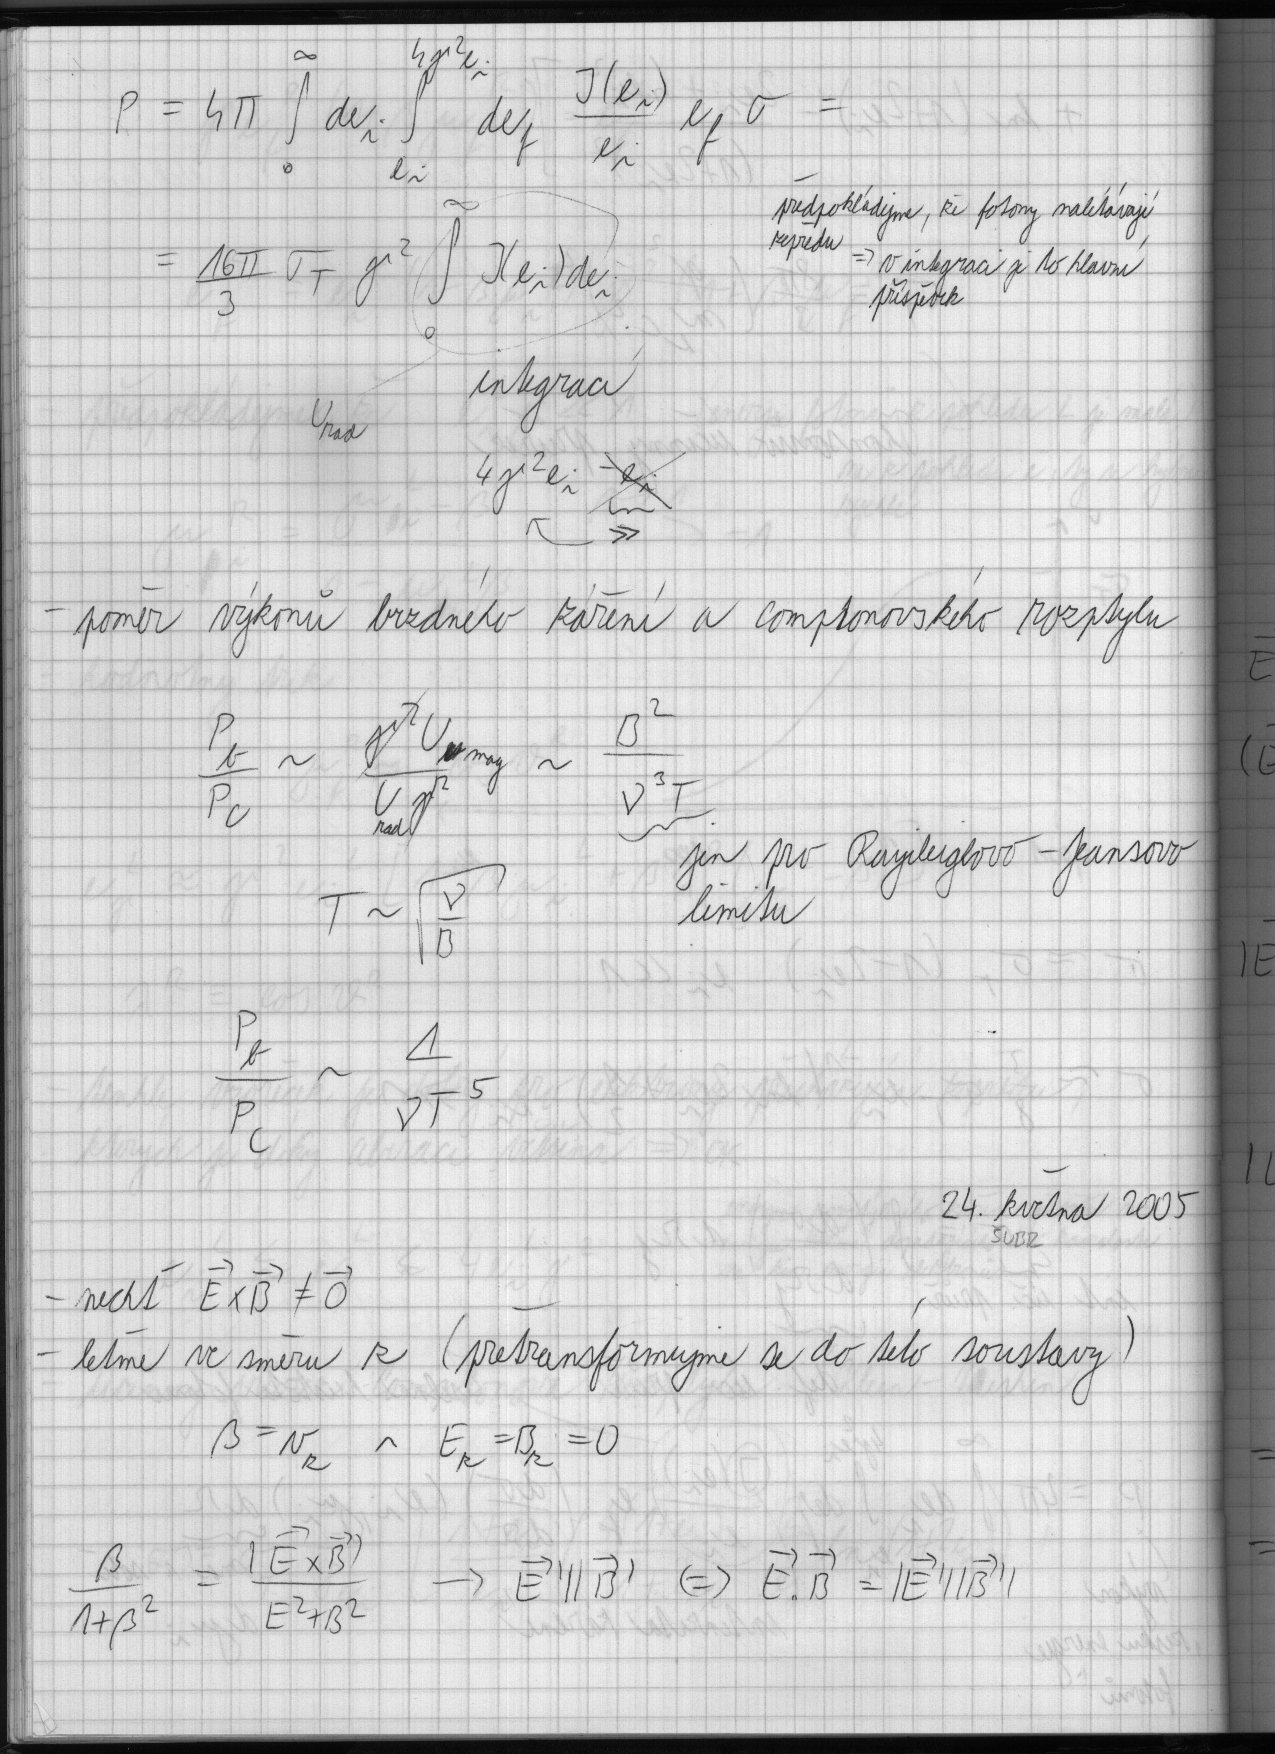 P = 4π ∫₀^∞ de_i ∫_{e_i}^{4γ²e_i} de_f J(e_i)/e_i e_f σ =
= 16π/3 σ_T γ² ∫₀^∞ J(e_i) de_i
předpokládejme, že fotony nalétávají
zepředu ⇒ v integraci je to hlavní
příspěvek
U_rad
integrací
4γ²e_i - e_i
≫
- poměr výkonů brzdného záření a comptonovského rozptylu
P_b/P_C ~ γ² U_mag / U_rad γ² ~ B²/ν³T
jen pro Rayileighovo - Jeansovo
limitu
T ~ √(ν/B)
P_b/P_C ~ 1/νT⁵
24. května 2005
ŠUBR
- nechť E⃗×B⃗ ≠ 0⃗
- leťme ve směru z (přetransformujme se do této soustavy)
β = v_z ∧ E_z = B_z = 0
β/(1+β²) = |E⃗×B⃗|/(E²+B²) → E⃗'||B⃗' ⇔ E⃗.B⃗ = |E⃗'||B⃗'|